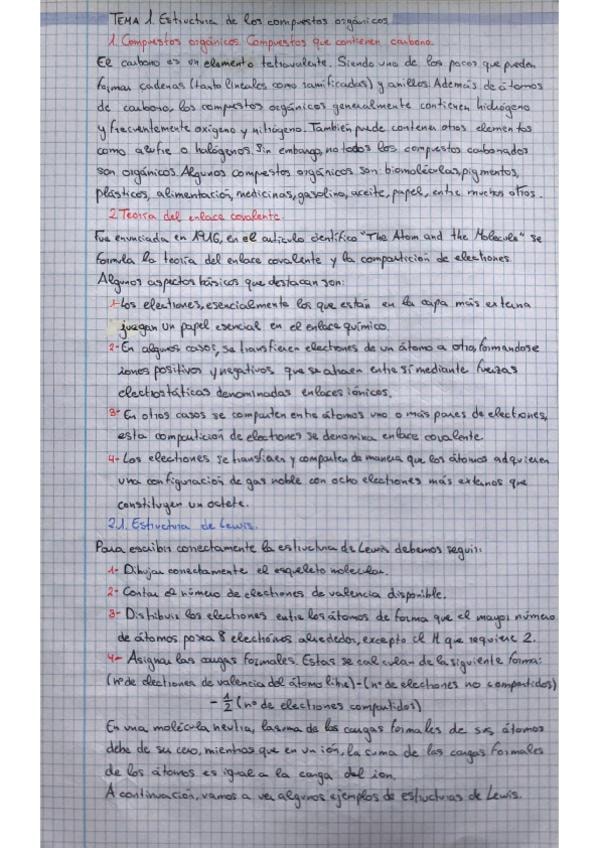 TEMA 1. Estructura de los compuestos orgánicos
1. Compuestos orgánicos. Compuestos que contienen carbono.
El carbono es un elemento tetravalente. Siendo uno de los pocos que pueden
formar cadenas (tanto lineales como ramificadas) y anillos. Además de átomos
de carbono, los compuestos orgánicos generalmente contienen hidrógeno
y frecuentemente oxígeno y nitrógeno. También puede contener otros elementos
como azufre o halógenos. Sin embargo, no todos los compuestos carbonados
son orgánicos. Algunos compuestos orgánicos son: biomoléculas, pigmentos,
plásticos, alimentación, medicinas, gasolina, aceite, papel, entre muchos otros.
2. Teoría del enlace covalente.
Fue enunciada en 1916, en el artículo científico "The Atom and the Molecule" se
formula la teoría del enlace covalente y la compartición de electrones.
Algunos aspectos básicos que destacan son:
1- Los electrones, esencialmente los que están en la capa más externa
juegan un papel esencial en el enlace químico.
2- En algunos casos, se transfieren electrones de un átomo a otro, formandose
iones positivos y negativos que se atraen entre sí mediante fuerzas
electrostáticas denominadas enlaces iónicos.
3- En otros casos se comparten entre átomos uno o más pares de electrones,
esta compartición de electrones se denomina enlace covalente.
4- Los electrones se transfieren y comparten de manera que los átomos adquieren
una configuración de gas noble con ocho electrones más externos que
constituyen un octete.
2.1. Estructura de Lewis.
Para escribir correctamente la estructura de Lewis debemos seguir:
1- Dibujar correctamente el esqueleto molecular.
2- Contar el número de electrones de valencia disponible.
3- Distribuir los electrones entre los átomos de forma que el mayor número
de átomos posea 8 electrones alrededor, excepto el H que requiere 2.
4- Asignar las cargas formales. Estas se calculan de la siguiente forma:
(nº de electrones de valencia del átomo libre) - (nº de electrones no compartidos)
- 1/2 (nº de electrones compartidos)
En una molécula neutra, la suma de las cargas formales de sus átomos
debe de ser cero, mientras que en un ión, la suma de las cargas formales
de los átomos es igual a la carga del ion.
A continuación, vamos a ver algunos ejemplos de estructuras de Lewis.